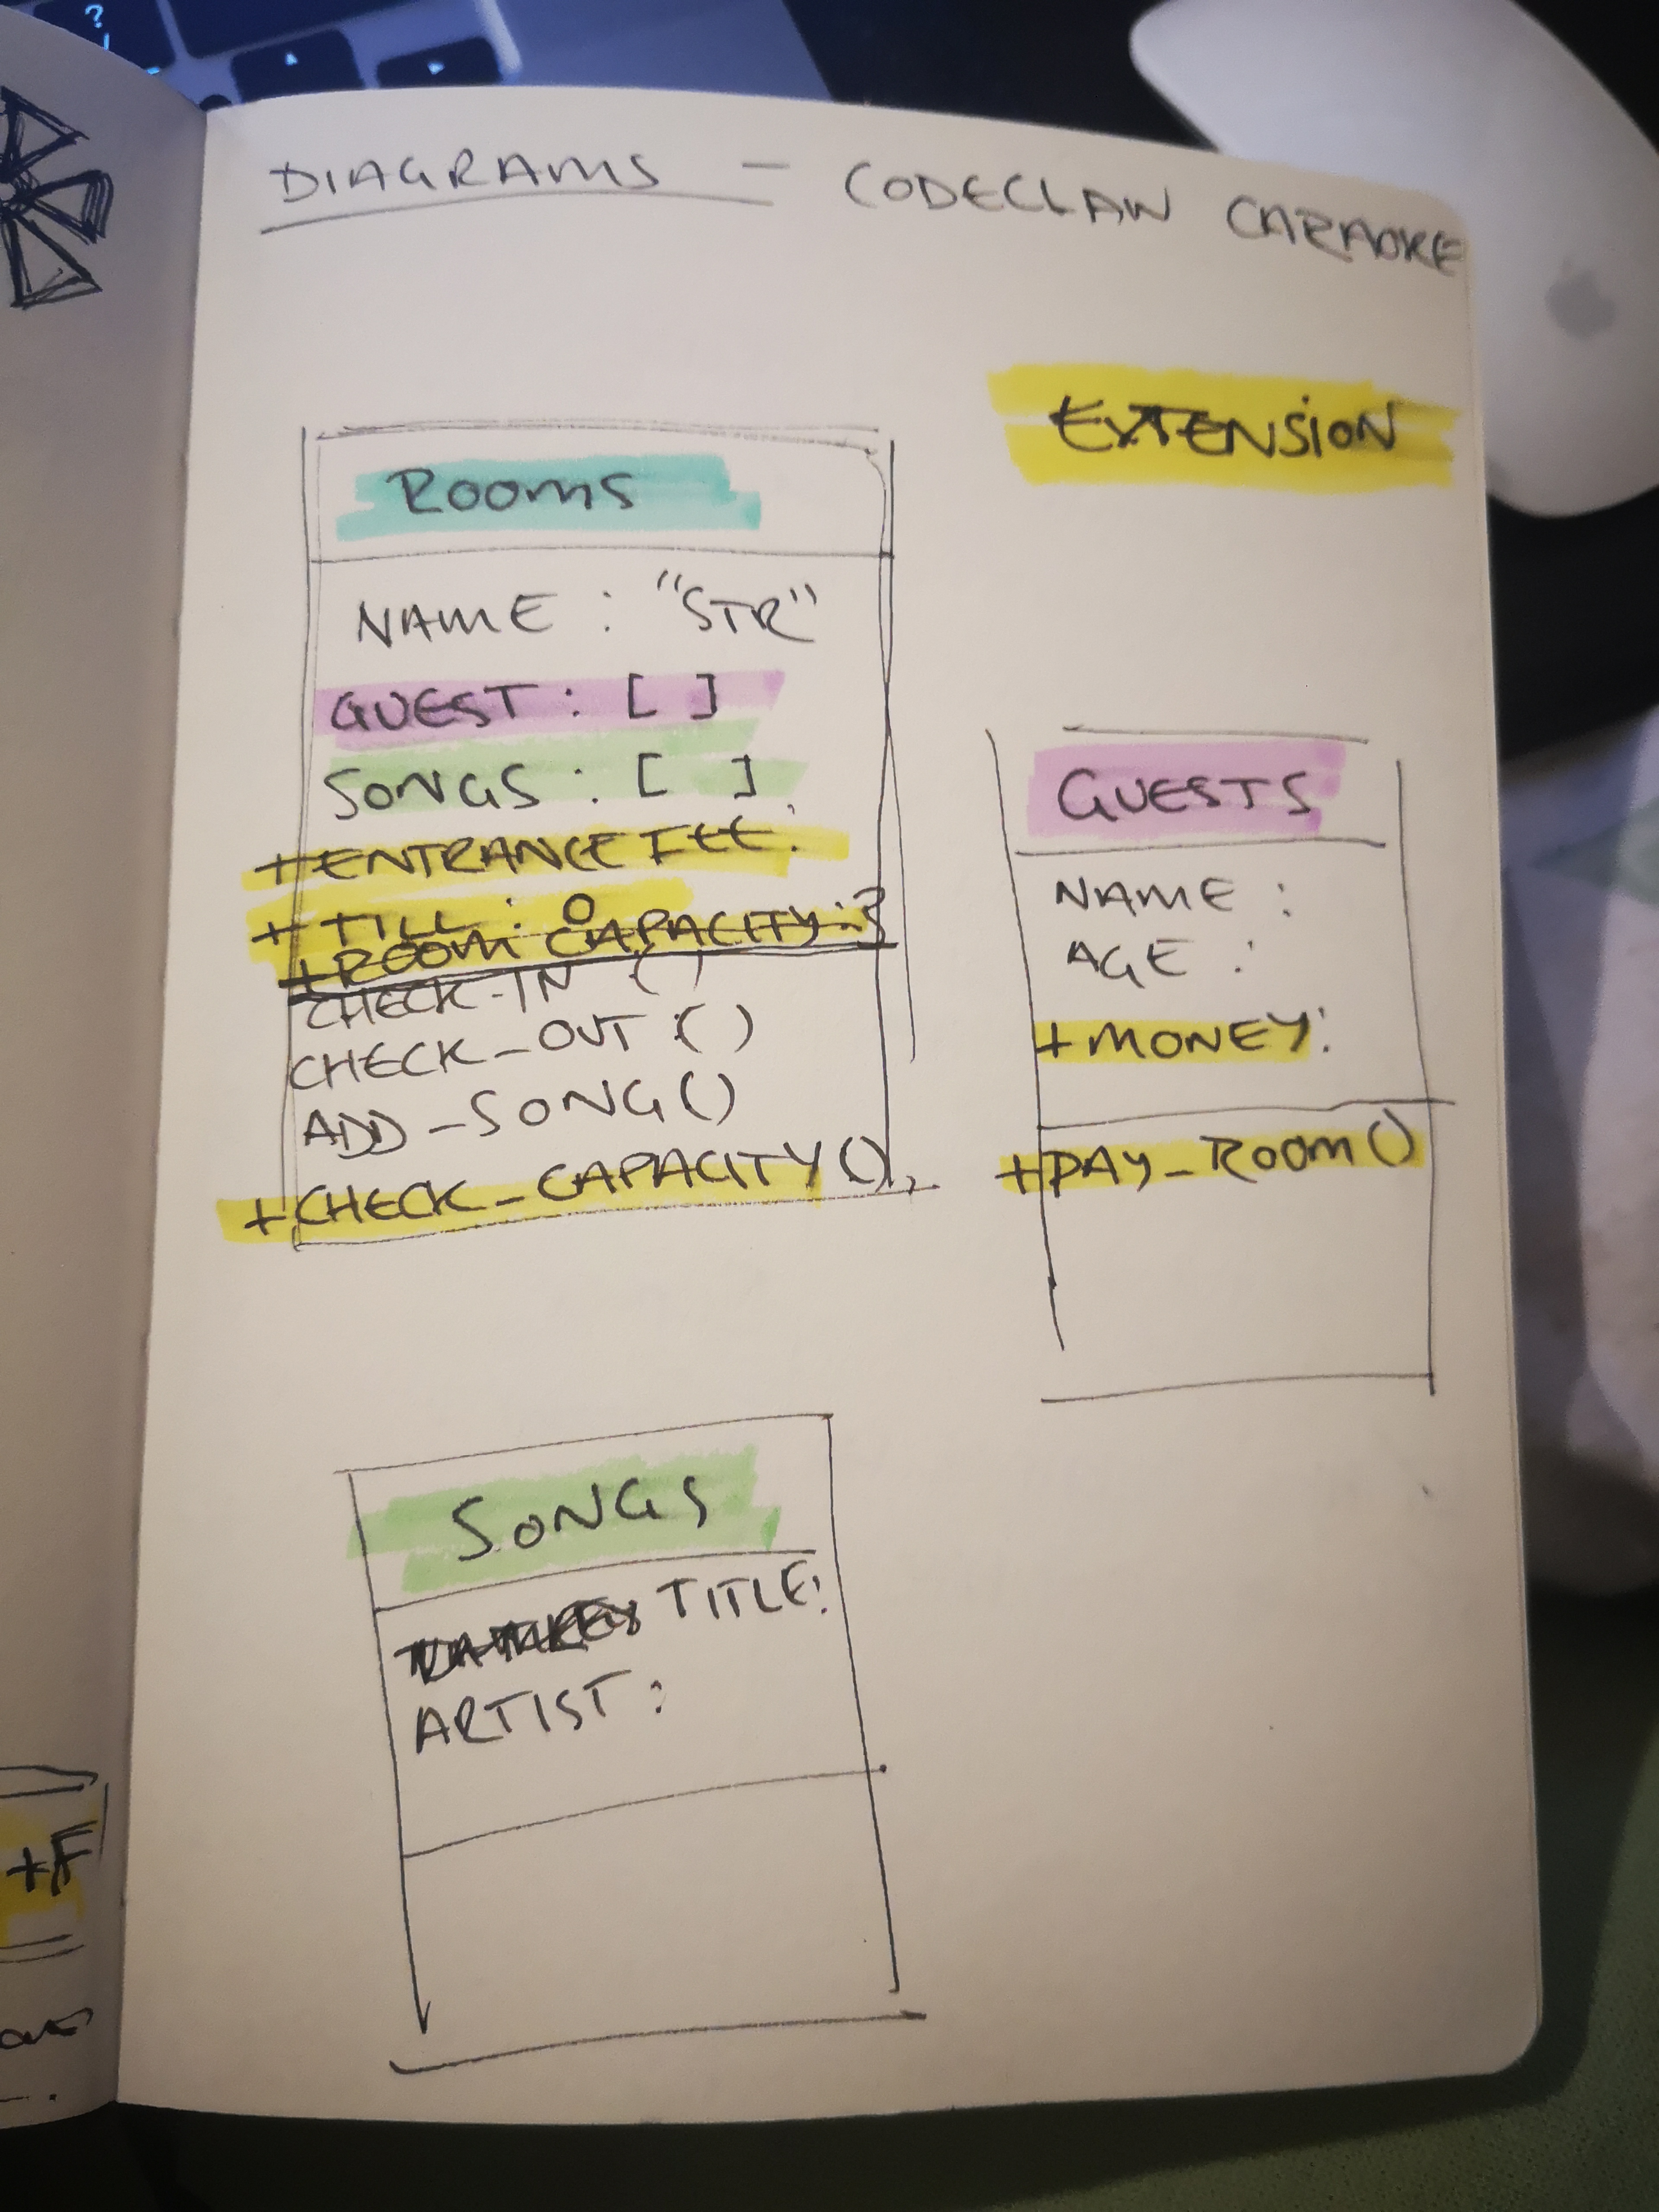 DIAGRAMS — CODECLAW CARAOKE
EXTENSION
ROOMS
NAME : "STR"
GUEST : [ ]
SONGS : [ ]
+ ENTRANCE FEE:
+ TILL : 0
+ ROOM CAPACITY: 3
CHECK-IN ()
CHECK_OUT ()
ADD_SONG()
+ CHECK_CAPACITY()
GUESTS
NAME :
AGE :
+ MONEY:
+ PAY_ROOM()
SONGS
TITLE:
ARTIST :
+F
?